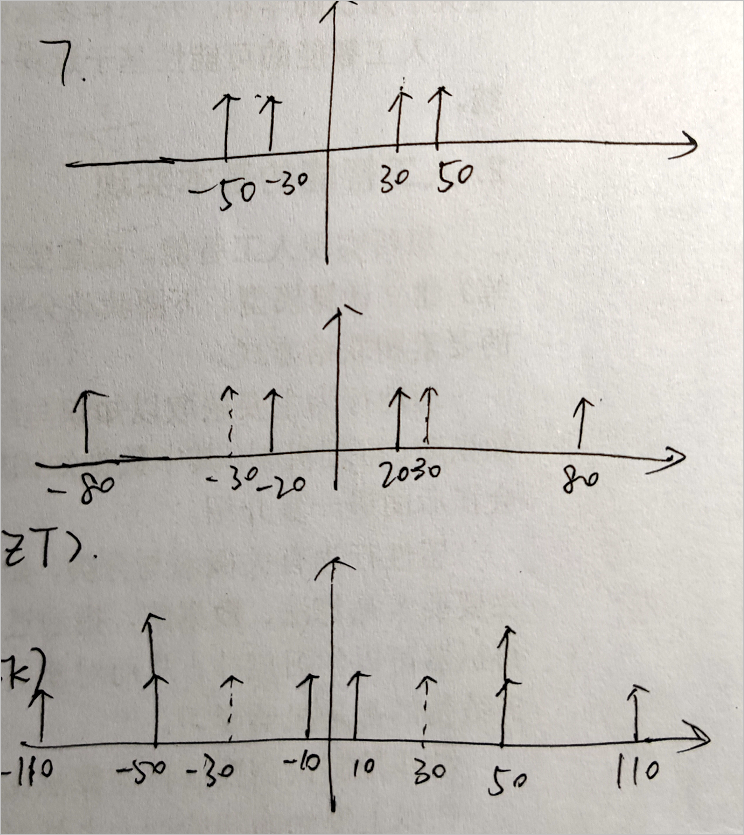 7.
-50 -30 30 50
-80 -30 -20 20 30 80
ZT).
k)
-110 -50 -30 -10 10 30 50 110